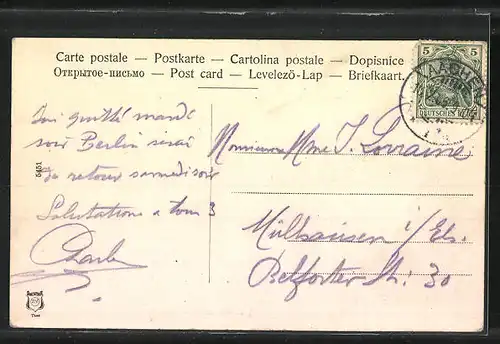 Carte postale — Postkarte — Cartolina postale — Dopisnice
Открытое-письмо — Post card — Levelező-Lap — Briefkaart.
5
5
DEUTSCHES REICH
AACHEN
J'ai quitté mardi
soir Berlin serai
de retour samedi soir
Salutations a tous 3
Charles
5451
Monsieur Mme J. Lorraine
Mülhausen i/Els.
Belforter Str. 30